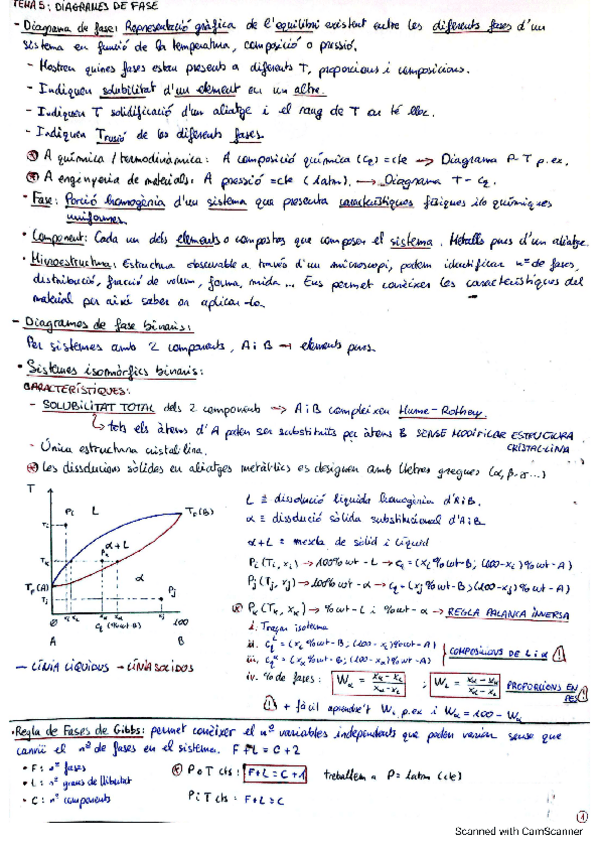 TEMA 5: DIAGRAMES DE FASE
- Diagrama de fase: Representació gràfica de l'equilibri existent entre les diferents fases d'un
sistema en funció de la temperatura, composició o pressió.
- Mostren quines fases estan presents a diferents T, proporcions i composicions.
- Indiquen solubilitat d'un element en un altre.
- Indiquen T solidificació d'un aliatge i el rang de T on té lloc.
- Indiquen Tfusió de les diferents fases.
A química / termodinàmica: A composició química (Cq) = cte → Diagrama P-T p.ex.
A enginyeria de materials: A pressió = cte (1atm). → Diagrama T - Cq.
• Fase: Porció homogènia d'un sistema que presenta característiques físiques i/o químiques
uniformes.
• Component: Cada un dels elements o compostos que composen el sistema. Metalls purs d'un aliatge.
• Microestructura: Estructura observable a través d'un microscopi, podem identificar nº de fases,
distribució, fracció de volum, forma, mida... Ens permet conèixer les característiques del
material per així saber on aplicar-lo.
- Diagrames de fase binaris:
Per sistemes amb 2 components, A i B → elements purs.
• Sistemes isomòrfics binaris:
CARACTERÍSTIQUES:
- SOLUBILITAT TOTAL dels 2 components → A i B compleixen Hume-Rothery.
tots els àtoms d'A poden ser substituïts per àtoms B SENSE MODIFICAR ESTRUCTURA
CRISTAL·LINA
- Única estructura cristal·lina.
Les dissolucions sòlides en aliatges metàl·lics es designen amb lletres gregues (α, β, γ...)
T
Pi L TF(B)
Ti
Tk Pk α+L
α
TF(A)
Tj Pj
0 Cq (%wt B) 100
A B
— LÍNIA LÍQUIDUS — LÍNIA SOLIDUS
L ≡ dissolució líquida homogènia d'A i B.
α ≡ dissolució sòlida substitucional d'A i B
α+L ≡ mescla de sòlid i líquid
Pi (Ti, xi) → 100% wt - L → Cq = (xi %wt-B; (100-xi) %wt-A)
Pj (Tj, xj) → 100% wt - α → Cq = (xj %wt-B; (100-xj) %wt-A)
Pk (Tk, xk) → % wt - L i % wt - α → REGLA PALANCA INVERSA
i. Traçar isoterma
ii. CqL = (xL %wt-B; (100-xL) %wt-A)
iii. Cqα = (xα %wt-B; (100-xα) %wt-A)
COMPOSICIONS DE L i α
iv. % de fases: Wα = xk - xL / xα - xL ; WL = xα - xk / xα - xL PROPORCIONS EN
PES
+ fàcil aprendre't WL p.ex i Wα = 100 - WL
• Regla de Fases de Gibbs: permet conèixer el nº variables independents que poden variar sense que
canvii el nº de fases en el sistema. F + L = C + 2
• F: nº fases
• L: nº graus de llibertat
• C: nº components
P o T cts: F+L = C+1 treballem a P = 1atm (cte)
P i T cts: F+L = C
1
Scanned with CamScanner